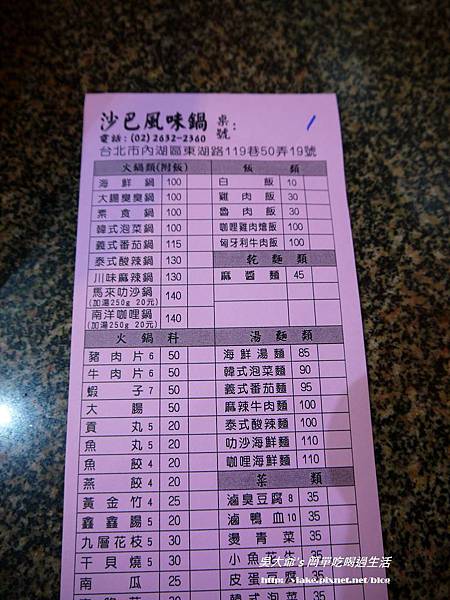 沙巴風味鍋 桌號:
電話:(02) 2632-2360
台北市內湖區東湖路119巷50弄19號
火鍋類(附飯)
海鮮鍋 100
大腸臭臭鍋 100
素食鍋 100
韓式泡菜鍋 100
義式番茄鍋 115
泰式酸辣鍋 130
川味麻辣鍋 130
馬來叻沙鍋 140
(加湯250g 20元)
南洋咖哩鍋 140
(加湯250g 20元)
火鍋料
豬肉片6 50
牛肉片6 50
蝦子7 50
大腸 50
貢丸5 20
魚丸5 20
魚餃4 20
燕餃4 20
黃金竹4 25
鑫鑫腸5 20
九層花枝5 30
干貝燒5 30
南瓜 25
飯類
白飯 10
雞肉飯 30
魯肉飯 30
咖哩雞肉燴飯 100
匈牙利牛肉飯 100
乾麵類
麻醬麵 45
湯麵類
海鮮湯麵 85
韓式泡菜麵 90
義式番茄麵 95
麻辣牛肉麵 100
泰式酸辣麵 100
叻沙海鮮麵 110
咖哩海鮮麵 110
菜類
滷臭豆腐8 35
滷鴨血10 35
燙青菜 35
小魚花生 35
皮蛋豆腐 35
韓式泡菜 35
吳大命's 簡單吃喝過生活
http://lake.pixnet.net/blog